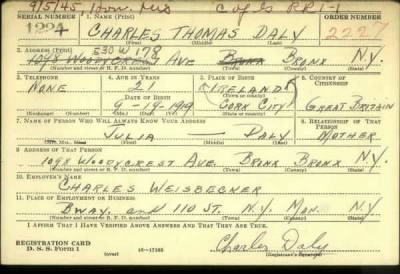 9/5/45, Hon. Dis Cog/s RR 1-1
SERIAL NUMBER 1. NAME (Print) ORDER NUMBER
1224 CHARLES THOMAS DALY 2227
(First) (Middle) (Last)
530 W 178
2. ADDRESS (Print)
1098 WOODYCREST AVE BRONX BRONX N.Y.
(Number and street or R. F. D. number) (Town) (County) (State)
3. TELEPHONE 4. AGE IN YEARS 5. PLACE OF BIRTH 6. COUNTRY OF CITIZENSHIP
NONE 21 (IRELAND)
(Town or county)
DATE OF BIRTH
9-19-1919 CORK CITY GREAT BRITAIN
(Exchange) (Number) (Mo.) (Day) (Yr.) (State or country)
7. NAME OF PERSON WHO WILL ALWAYS KNOW YOUR ADDRESS 8. RELATIONSHIP OF THAT PERSON
JULIA — DALY MOTHER
(Mr., Mrs., Miss) (First) (Middle) (Last)
9. ADDRESS OF THAT PERSON
1098 WOODYCREST AVE. BRONX BRONX N.Y.
(Number and street or R. F. D. number) (Town) (County) (State)
10. EMPLOYER'S NAME
CHARLES WEISBECKER
11. PLACE OF EMPLOYMENT OR BUSINESS
BWAY. and 110 ST. N.Y. MAN. N.Y.
(Number and street or R. F. D. number) (Town) (County) (State)
I AFFIRM THAT I HAVE VERIFIED ABOVE ANSWERS AND THAT THEY ARE TRUE.
REGISTRATION CARD
D. S. S. Form 1 (over) 16—17105 Charles Daly
(Registrant's signature)